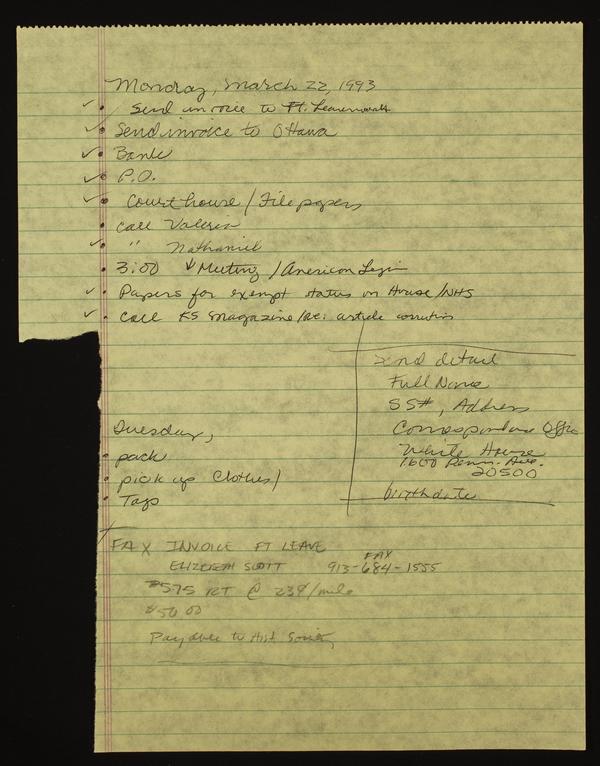 Monday, March 22, 1993
✓ • Send invoice to Ft. Leavenworth
✓ • Send invoice to Ottawa
✓ • Bank
✓ • P.O.
✓ • Courthouse / File papers
• Call Valerie
✓ • " Nathaniel
• 3:00 Meeting / American Legion
✓ • Papers for exempt status on House / NHS
✓ • Call KS Magazine / Re: article
send detail
Full Name
SS#, Address
Correspondence Office
White House
1600 Penn. Ave.
20500
birthdate
Tuesday,
• pack
• pick up Clothes /
• Tags
FAX INVOICE FT LEAVE
FAX
ELIZEBETH SCOTT 913-684-1555
575 RT @ 23¢/mile
$50.00
Payable to Hist. Society